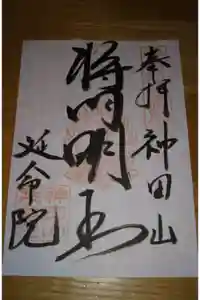 奉拝 神田山
将門明王
延命院